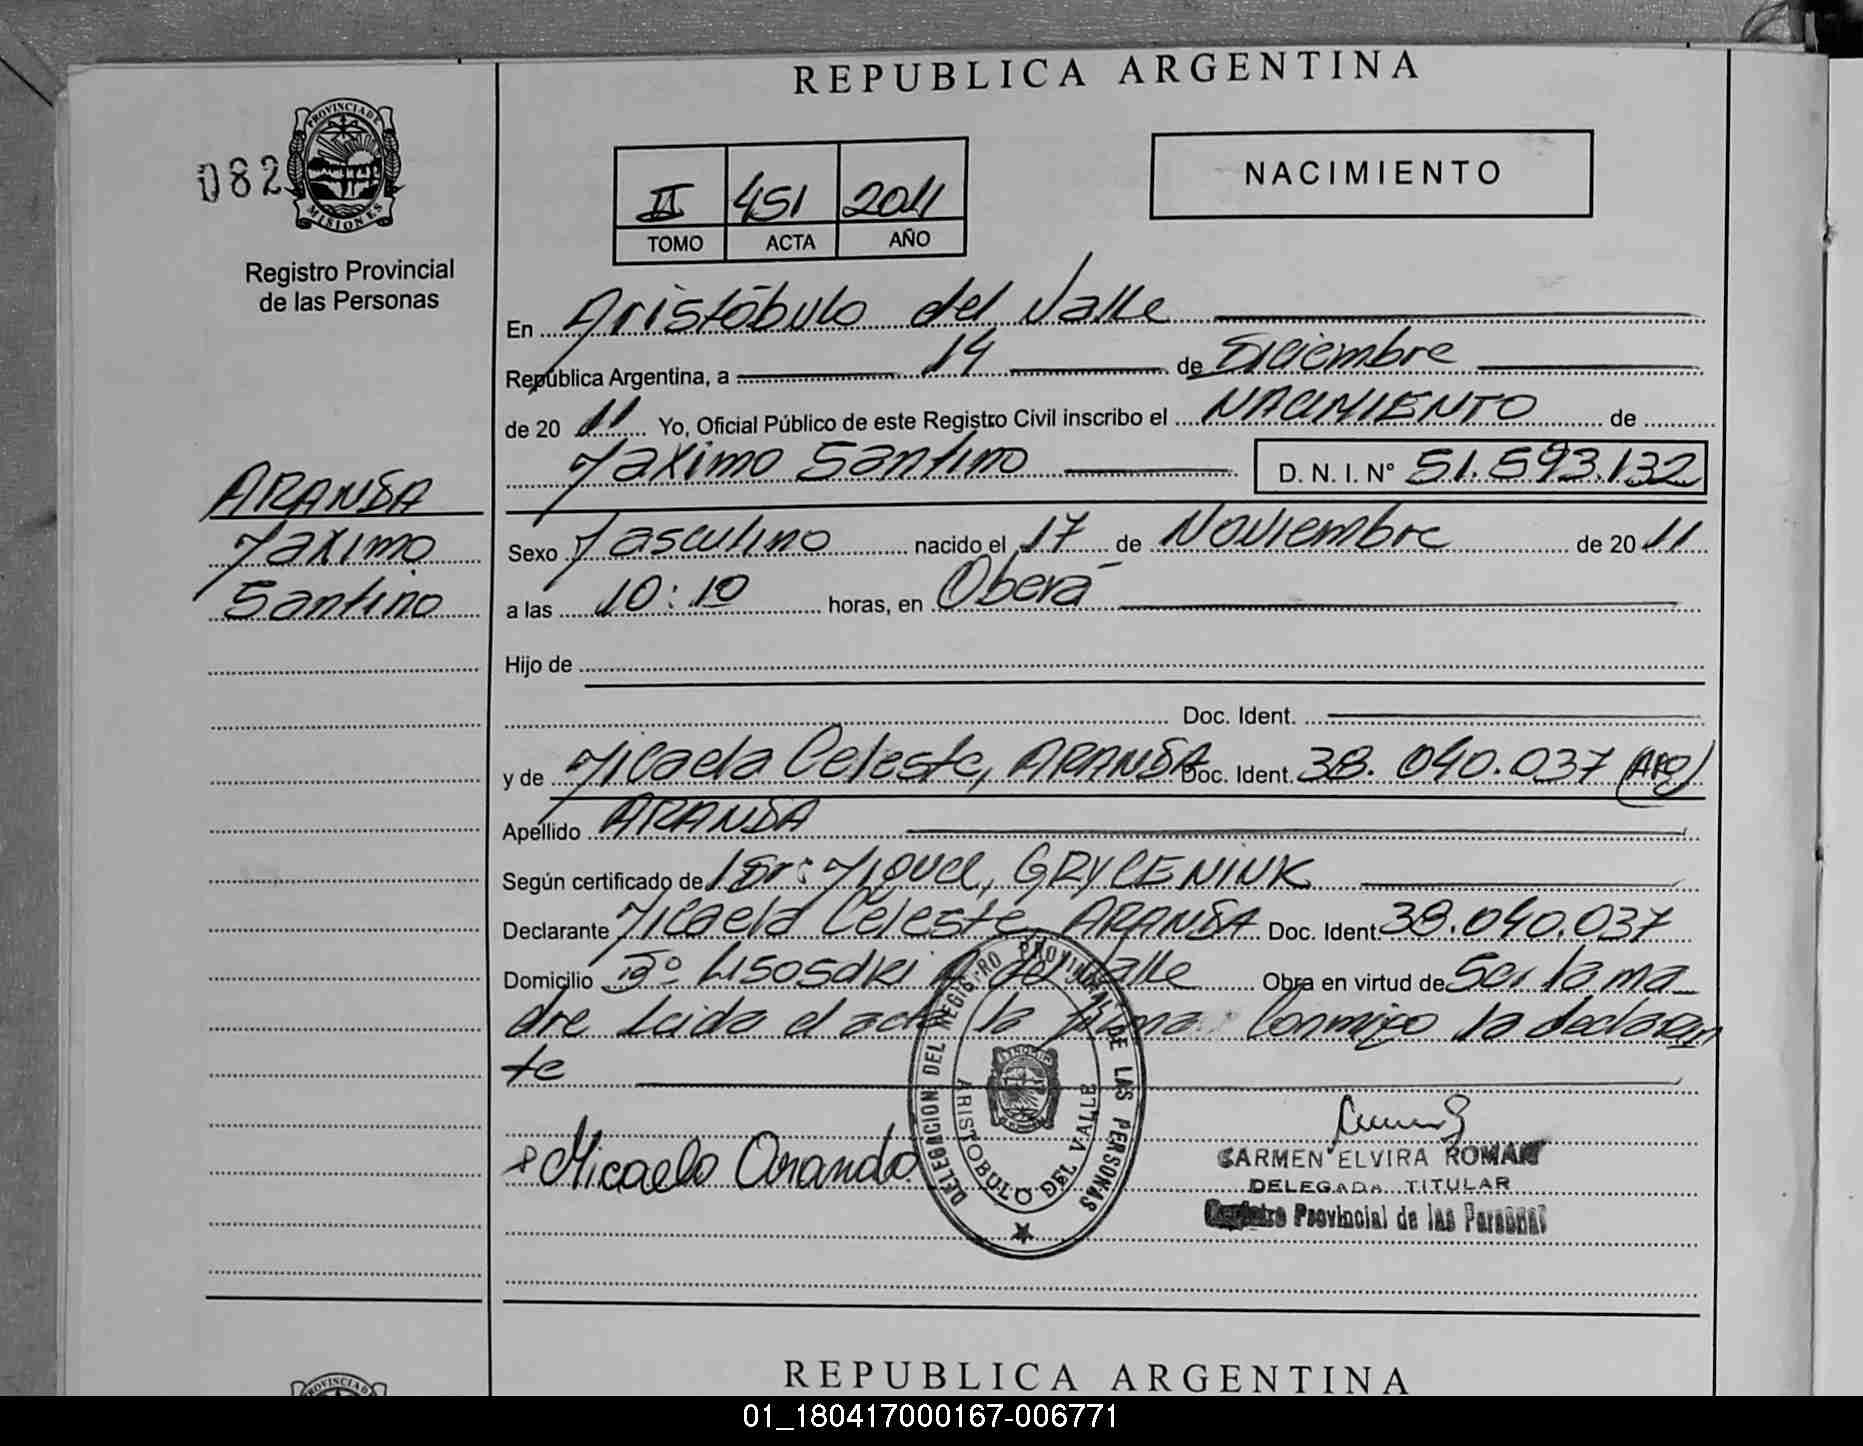 REPUBLICA ARGENTINA
082
PROVINCIA DE
MISIONES
Registro Provincial
de las Personas
II 451 2011
TOMO ACTA AÑO
NACIMIENTO
En Aristóbulo del Valle
República Argentina, a 14 de Diciembre
de 20 11 Yo, Oficial Público de este Registro Civil inscribo el NACIMIENTO de
Maximo Santino D. N. I. N° 51.593.132
ARANDA
Maximo
Santino
Sexo Masculino nacido el 17 de Noviembre de 20 11
a las 10:10 horas, en Oberá
Hijo de
Doc. Ident.
y de Micaela Celeste, ARANDA Doc. Ident. 38.040.037 (ARG)
Apellido ARANDA
Según certificado de Dr: Miguel, GRYCENIUK
Declarante Micaela Celeste, ARANDA Doc. Ident. 38.040.037
Domicilio Bº A. del Valle Obra en virtud de Ser la ma
dre Leida el acta la firma Conmigo la declaran
te
DELEGACION DEL REGISTRO PROVINCIAL DE LAS PERSONAS
ARISTOBULO DEL VALLE
Micaela Aranda
CARMEN ELVIRA ROMAN
DELEGADA TITULAR
Registro Provincial de las Personas
REPUBLICA ARGENTINA
PROVINCIA D
01_180417000167-006771